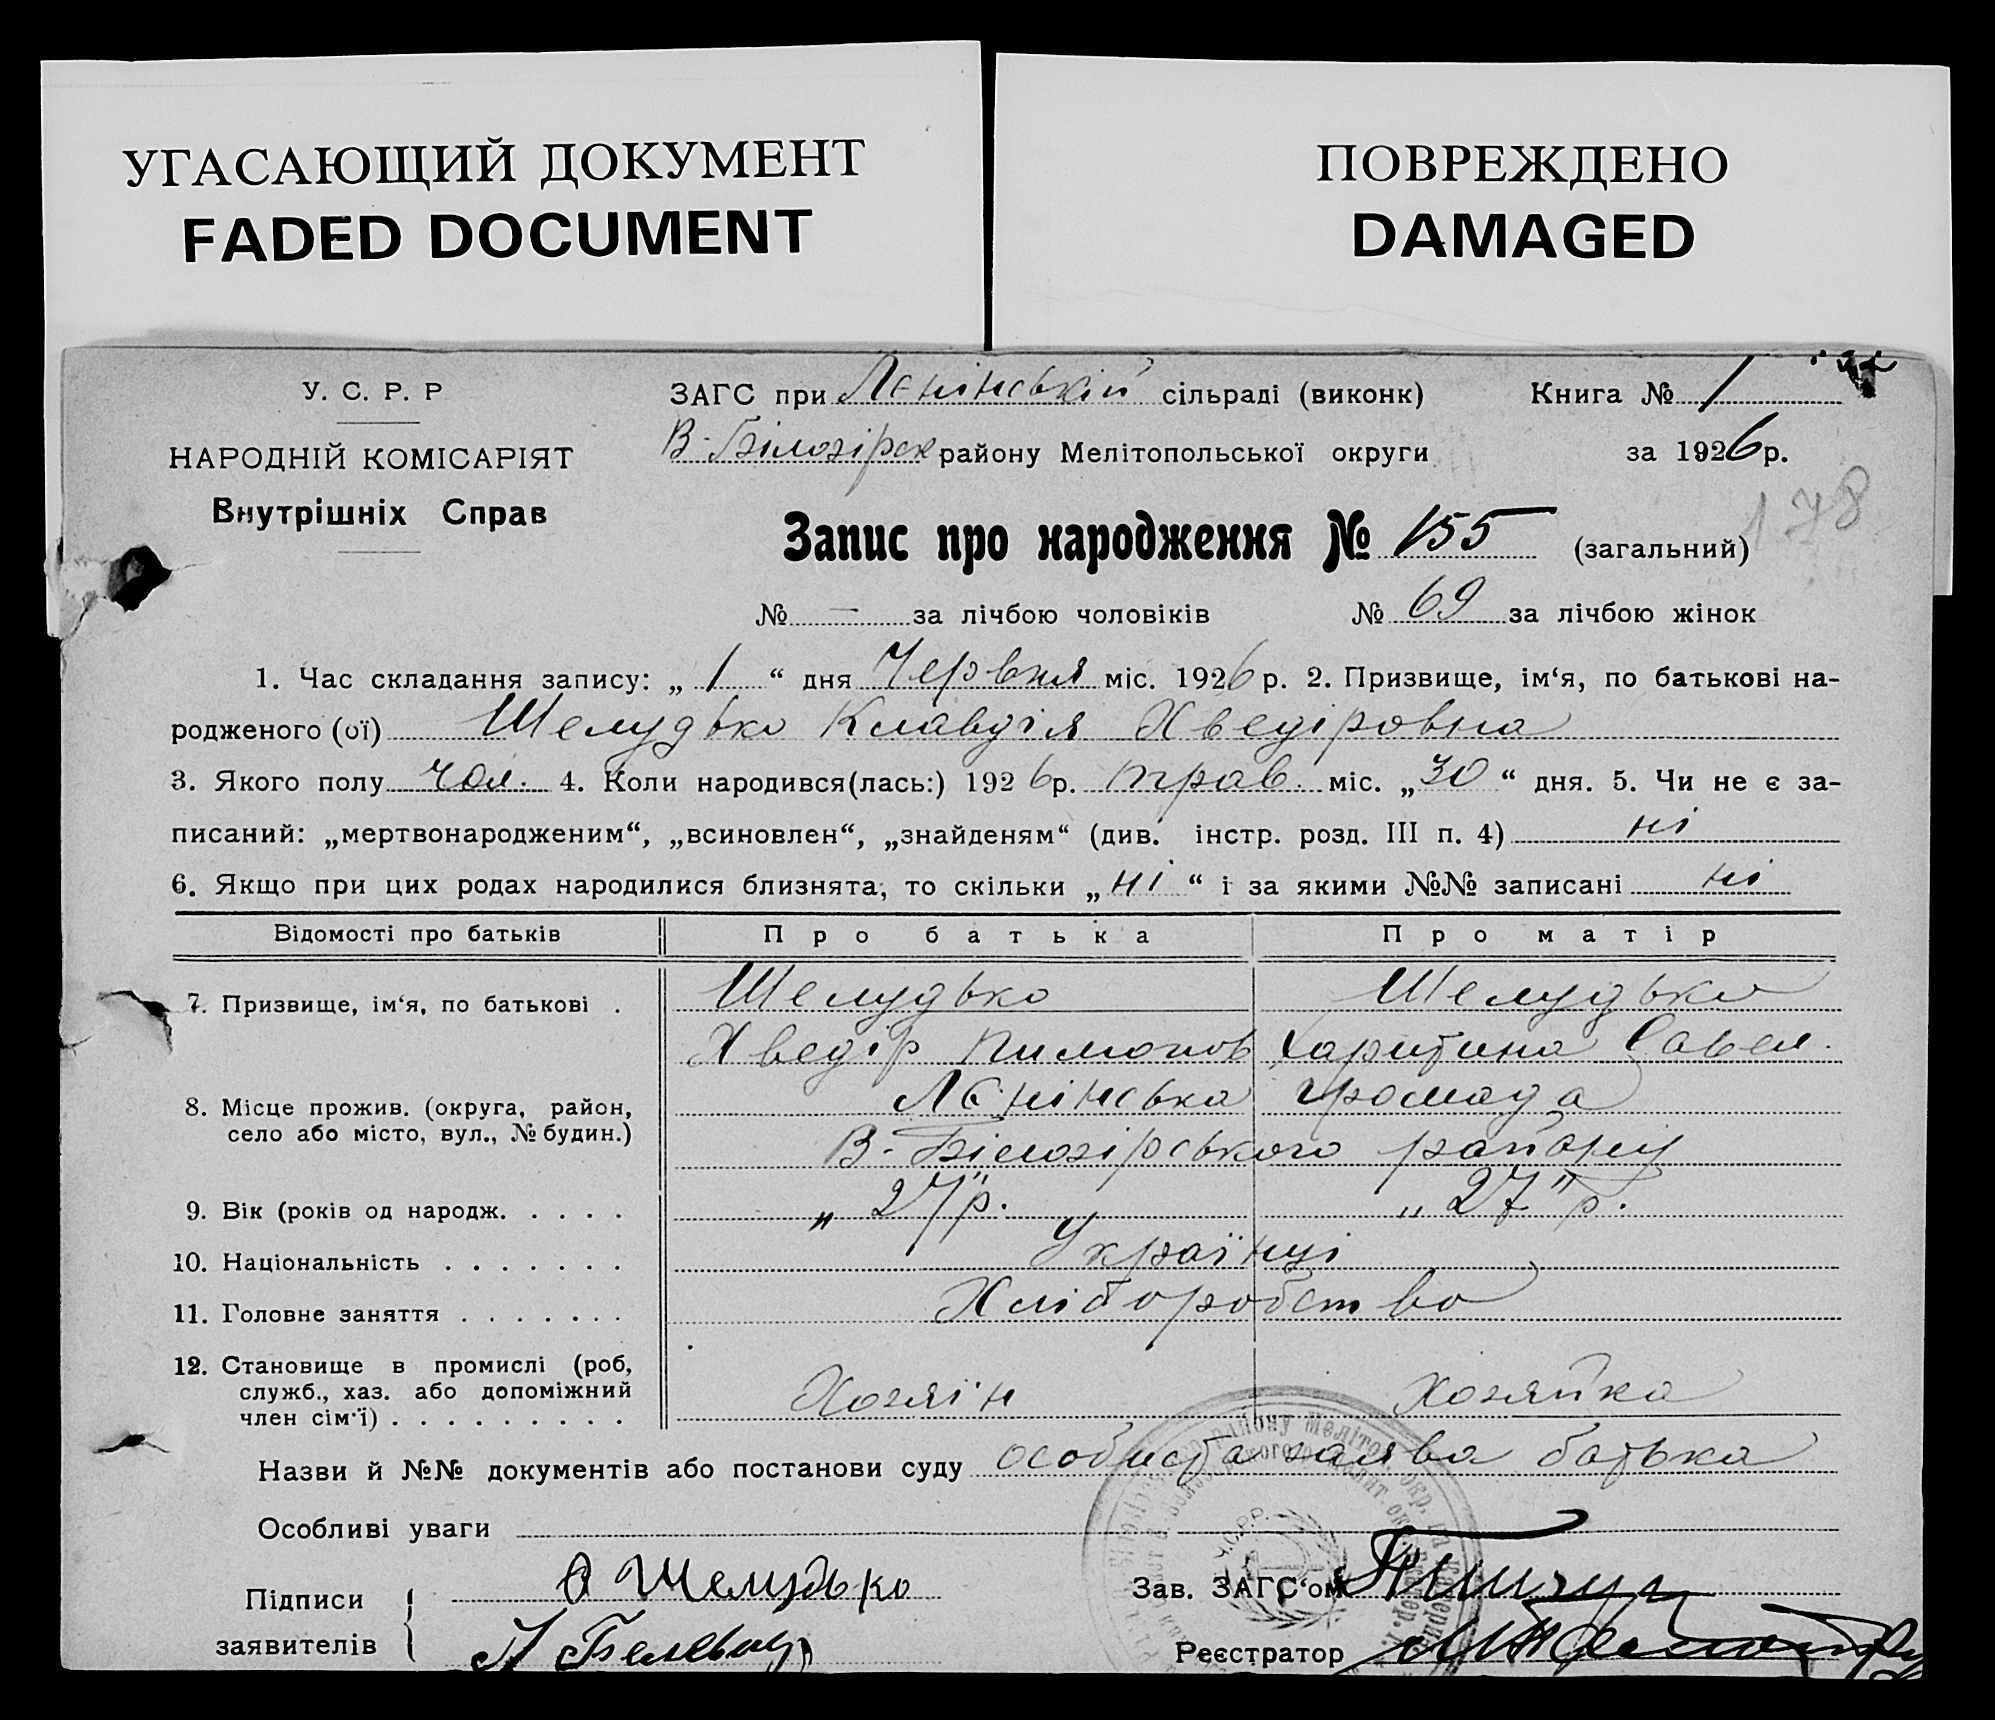 УГАСАЮЩИЙ ДОКУМЕНТ
FADED DOCUMENT
ПОВРЕЖДЕНО
DAMAGED
У. С. Р. Р
НАРОДНІЙ КОМІСАРІЯТ
Внутрішніх Справ
ЗАГС при Лєнінській сільраді (виконк) Книга № 1
В-Білозірск району Мелітопольської округи за 1926 р.
178
Запис про народження № 155 (загальний)
№ — за лічбою чоловіків № 69 за лічбою жінок
1. Час складання запису: „ 1 “ дня Червня міс. 1926 р. 2. Призвище, ім‘я, по батькові на-
родженого (ої) Шелудько Клавдія Хведіровна
3. Якого полу чол. 4. Коли народився(лась:) 1926 р. трав. міс. „30“ дня. 5. Чи не є за-
писаний: „мертвонародженим“, „всиновлен“, „знайденям“ (див. інстр. розд. III п. 4) ні
6. Якщо при цих родах народилися близнята, то скільки „ні“ і за якими №№ записані ні
Відомості про батьків Про батька Про матір
7. Призвище, ім‘я, по батькові . Шелудько Шелудько
Хведір Пимонов Харитина Савел.
8. Місце прожив. (округа, район, Лєнінська громада
село або місто, вул., № будин.) В-Білозірського району
9. Вік (років од народж. . . . . „27“р. „27“р.
10. Національність . . . . . . . Українці
11. Головне заняття . . . . . . . Хліборобство
12. Становище в промислі (роб,
служб., хаз. або допоміжний Хозяїн Хозяйка
член сім‘ї) . . . . . . . . .
Назви й №№ документів або постанови суду особиста заява батька
Особливі уваги
Підписи Шелудько Зав. ЗАГС‘ом
заявителів Реєстратор
У.С.Р.Р.